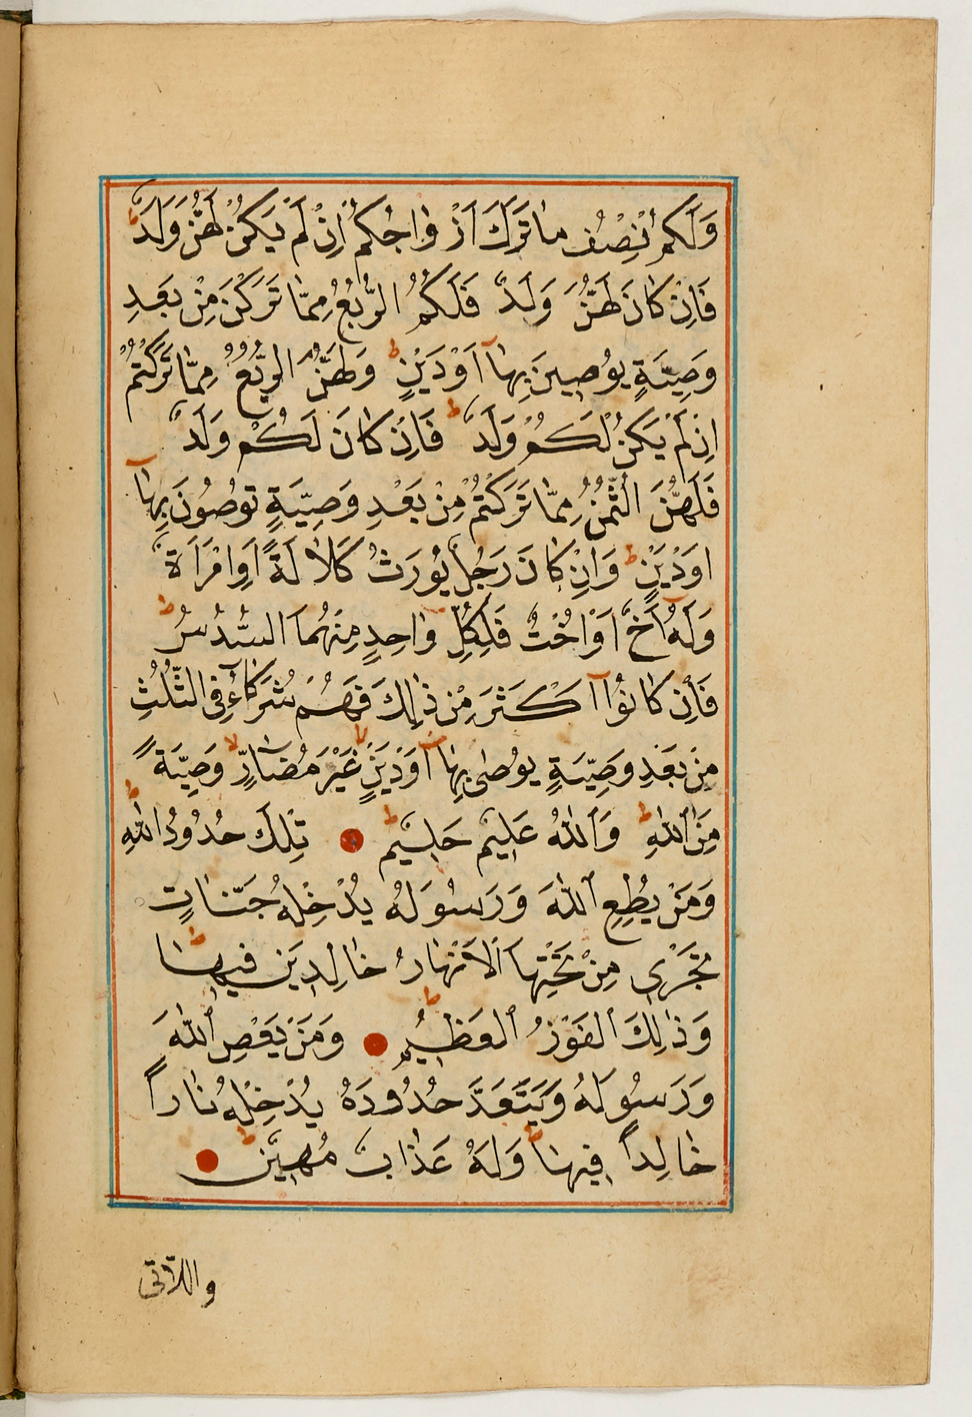 وَلَكُمْ نِصْفُ مَا تَرَكَ اَزْوَاجُكُمْ اِنْ لَمْ يَكُنْ لَهُنَّ وَلَدٌ ط
فَاِنْ كَانَ لَهُنَّ وَلَدٌ فَلَكُمُ الرُّبُعُ مِمَّا تَرَكْنَ مِنْ بَعْدِ
وَصِيَّةٍ يُوصِينَ بِهَآ اَوْ دَيْنٍ ط وَلَهُنَّ الرُّبُعُ مِمَّا تَرَكْتُمْ
اِنْ لَمْ يَكُنْ لَكُمْ وَلَدٌ ط فَاِنْ كَانَ لَكُمْ وَلَدٌ
فَلَهُنَّ الثُّمُنُ مِمَّا تَرَكْتُمْ مِنْ بَعْدِ وَصِيَّةٍ تُوصُونَ بِهَآ
اَوْ دَيْنٍ ط وَاِنْ كَانَ رَجُلٌ يُورَثُ كَلَالَةً اَوِ امْرَاَةٌ
وَلَهُٓ اَخٌ اَوْ اُخْتٌ فَلِكُلِّ وَاحِدٍ مِنْهُمَا السُّدُسُ ط
فَاِنْ كَانُوٓا اَكْثَرَ مِنْ ذٰلِكَ فَهُمْ شُرَكَآءُ فِى الثُّلُثِ
مِنْ بَعْدِ وَصِيَّةٍ يُوصٰى بِهَآ اَوْ دَيْنٍ لا غَيْرَ مُضَارٍّ لا وَصِيَّةً
مِنَ اللّٰهِ ط وَاللّٰهُ عَلِيمٌ حَلِيمٌ ط تِلْكَ حُدُودُ اللّٰهِ ط
وَمَنْ يُطِعِ اللّٰهَ وَرَسُولَهُ يُدْخِلْهُ جَنَّاتٍ
تَجْرِي مِنْ تَحْتِهَا الْاَنْهَارُ خَالِدِينَ فِيهَا ط
وَذٰلِكَ الْفَوْزُ الْعَظِيمُ ط وَمَنْ يَعْصِ اللّٰهَ
وَرَسُولَهُ وَيَتَعَدَّ حُدُودَهُ يُدْخِلْهُ نَاراً
خَالِداً فِيهَا ط وَلَهُ عَذَابٌ مُهِينٌ ط
واللّاتى